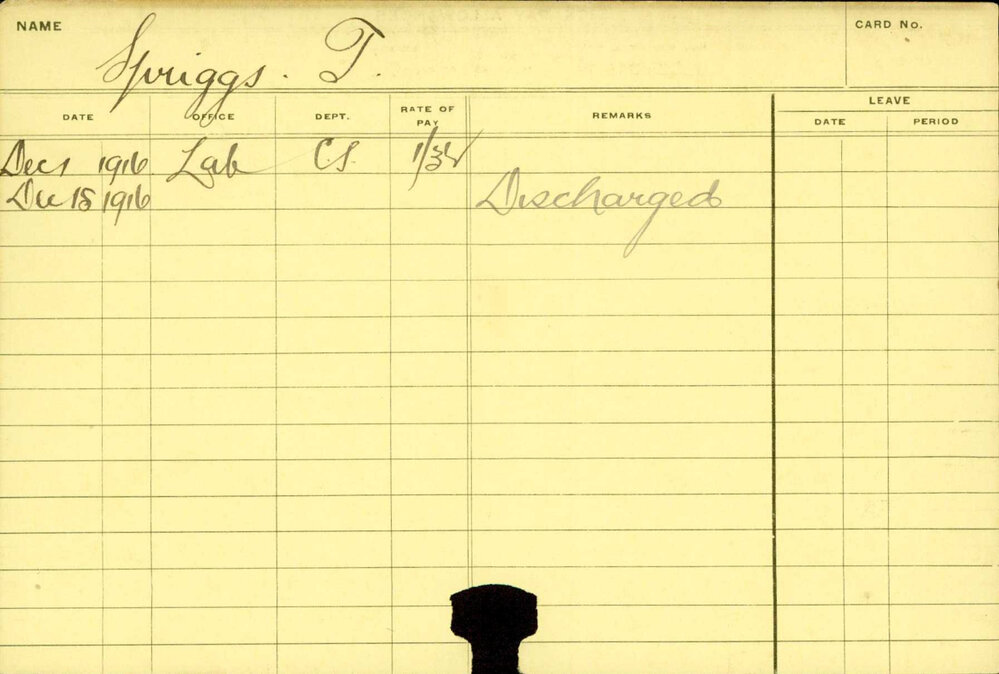 NAME Spriggs. T. CARD No.
DATE OFFICE DEPT. RATE OF PAY REMARKS LEAVE DATE PERIOD
Dec 1 1916 Lab C.S.
Dec 18 1916 Discharged